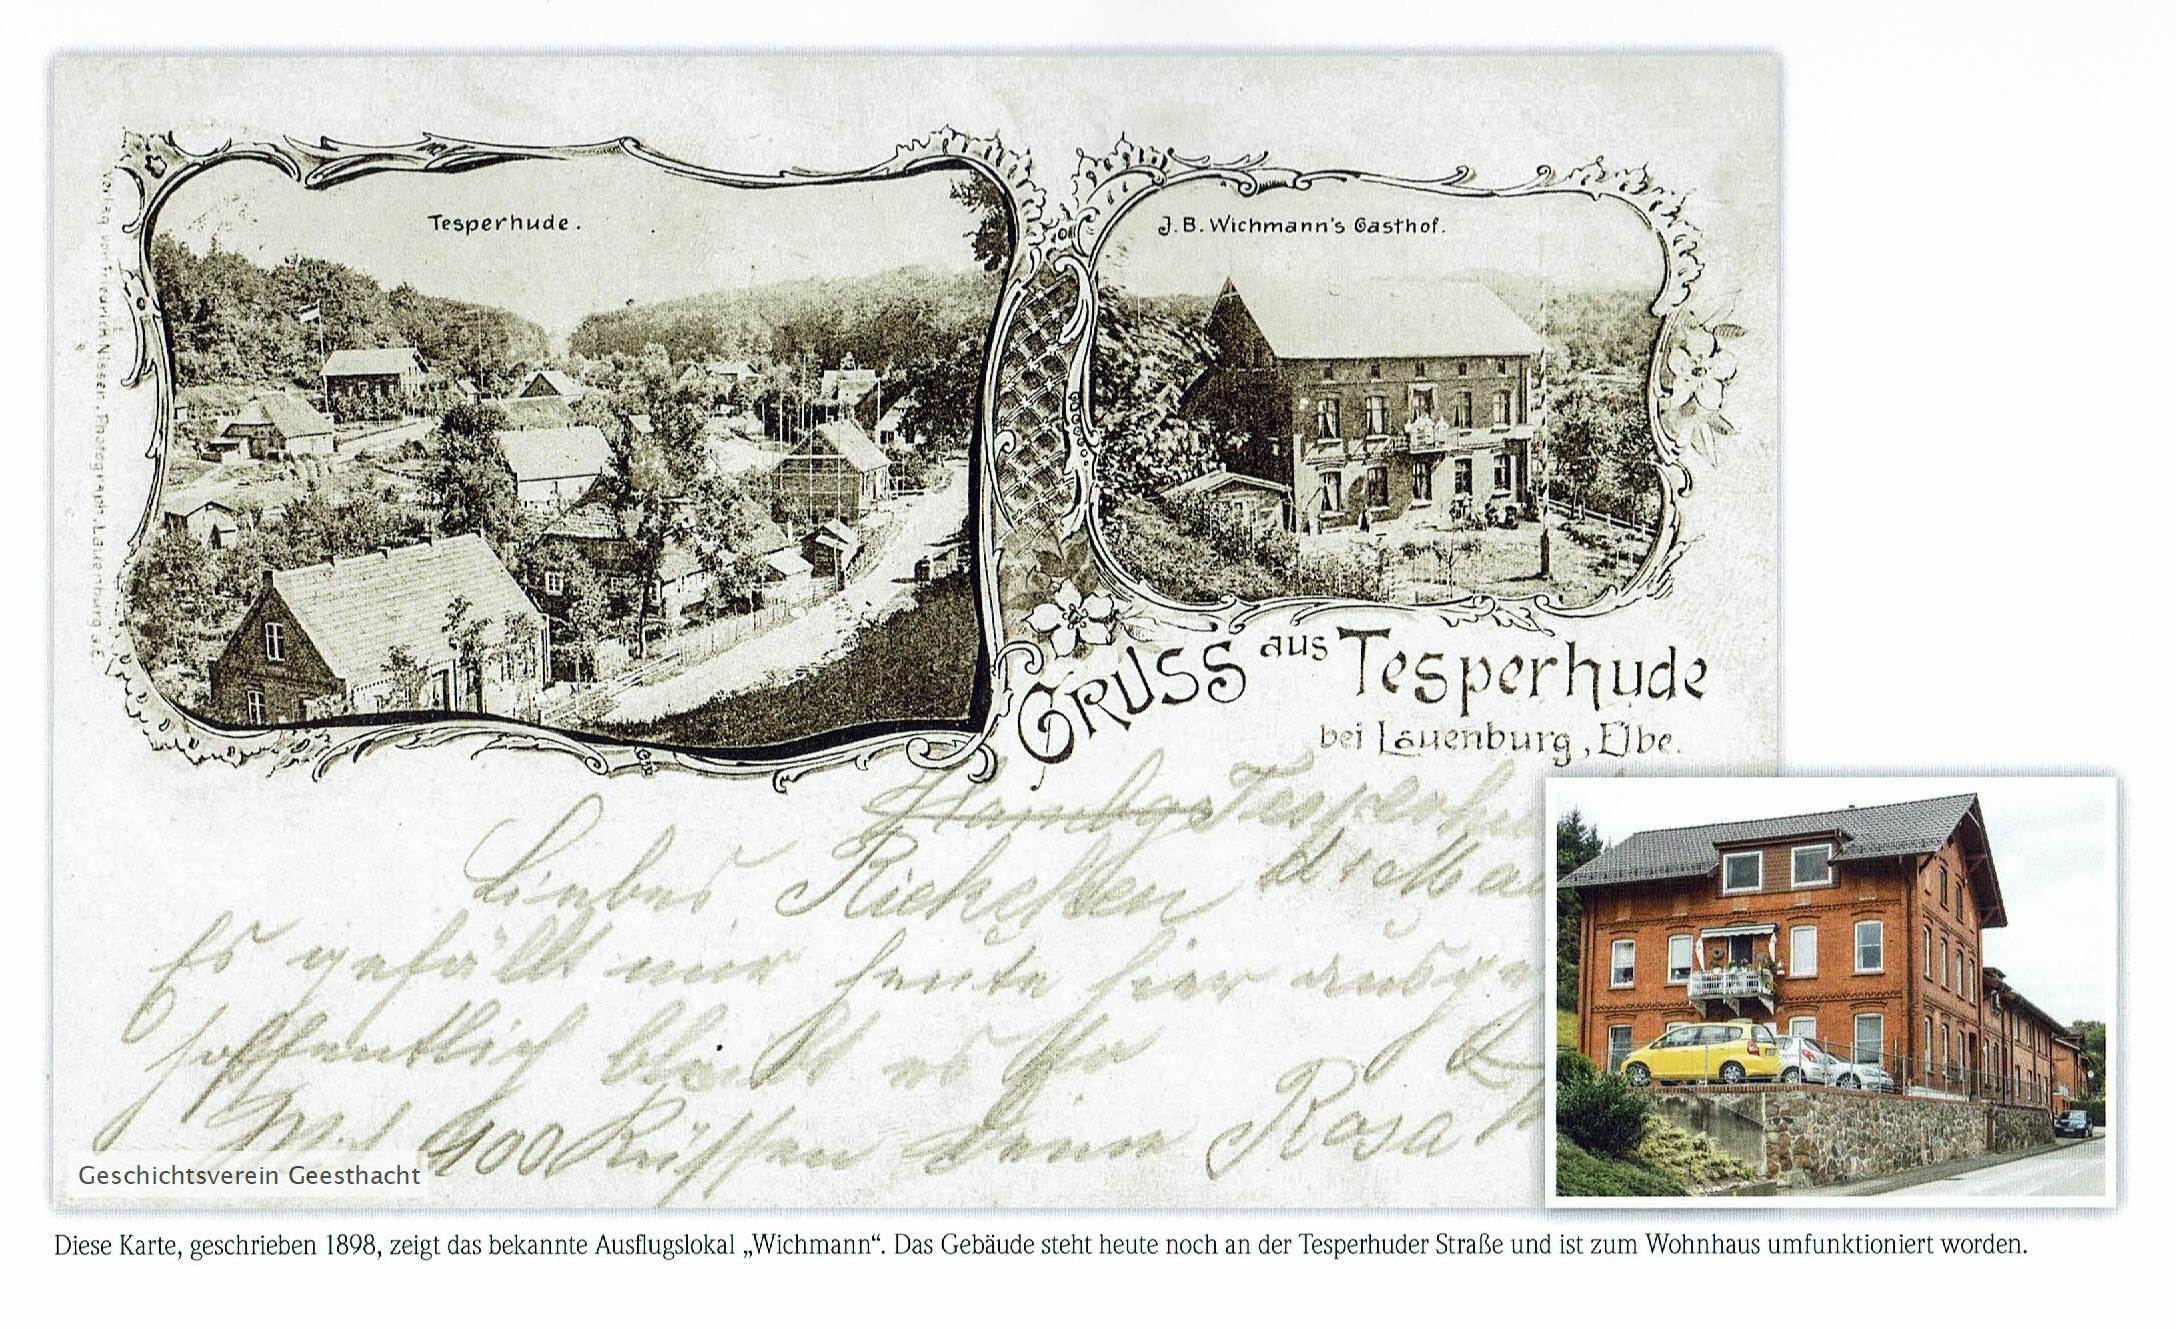 Tesperhude.
J. B. Wichmann's Gasthof.
Verlag von Friedrich Nissen, Photograph, Lauenburg a.E.
GRUSS aus Tesperhude
bei Lauenburg, Elbe.
Hambg Tesperhu
Liebes Riekchen
Es gefällt mir heute hier
hoffentlich bleibt es Ihr
400 Küssen Deine Rosa
Geschichtsverein Geesthacht
Diese Karte, geschrieben 1898, zeigt das bekannte Ausflugslokal „Wichmann“. Das Gebäude steht heute noch an der Tesperhuder Straße und ist zum Wohnhaus umfunktioniert worden.